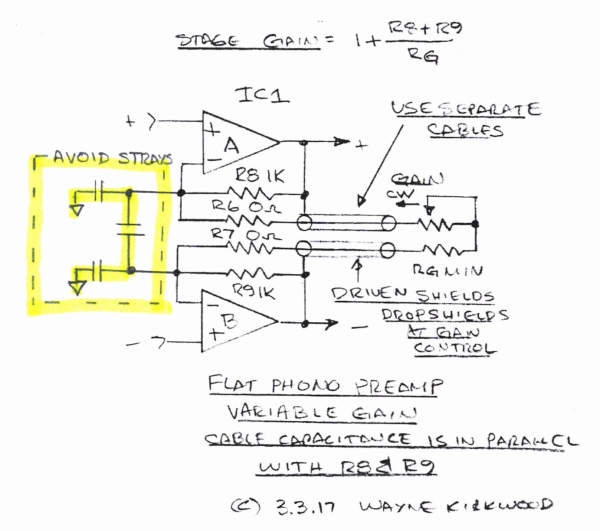 STAGE GAIN = 1 + R8+R9
RG
IC1
USE SEPARATE
CABLES
+
+
A
+
-
AVOID STRAYS
R8 1K
GAIN
CW
R6 0Ω
R7 0Ω
RGMIN
R9 1K
DRIVEN SHIELDS
DROP SHIELDS
AT GAIN
CONTROL
-
B
+
-
-
FLAT PHONO PREAMP
VARIABLE GAIN
CABLE CAPACITANCE IS IN PARALLEL
WITH R8 & R9
(C) 3.3.17 WAYNE KIRKWOOD